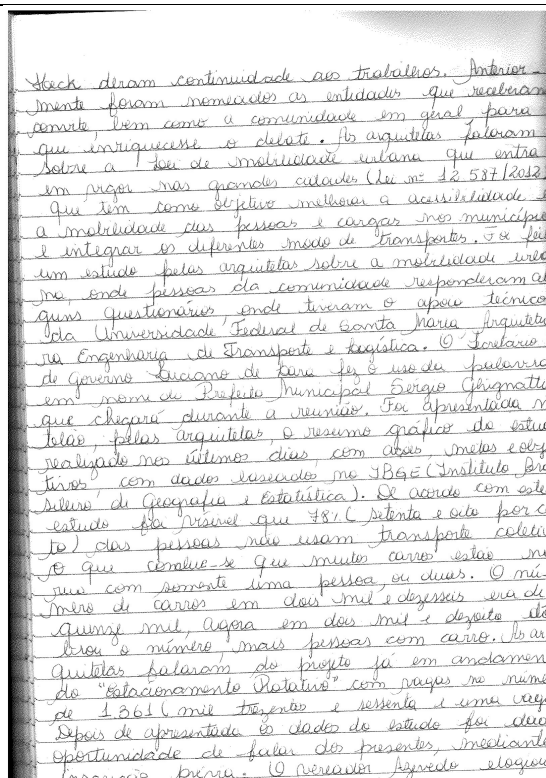 Hack deram continuidade aos trabalhos. Anterior-
mente foram nomeados as entidades que receberam
convite, bem como a comunidade em geral para
que enriquecesse o debate. As arquitetas falaram
sobre a Lei de mobilidade urbana que entra
em vigor nas grandes cidades (Lei nº 12.587/2012)
que tem como objetivo melhorar a acessibilidade e
a mobilidade das pessoas e cargas nos município
e integrar os diferentes modo de transportes. Foi fei
um estudo pelas arquitetas sobre a mobilidade urba
na, onde pessoas da comunidade responderam al
guns questionários, onde tiveram o apoio técnico
da Universidade Federal de Santa Maria Arquitetu
ra Engenharia de Transporte e Logística. O Secretário
de Governo Luciano de Para fez o uso da palavra
em nome do Prefeito Municipal Sergio Ghignatti
que chegará durante a reunião. Foi apresentada n
telão, pelas arquitetas, o resumo gráfico do estud
realizado nos últimos dias, com metas e obje
tivos, com dados baseados no IBGE (Instituto Bra
sileiro de Geografia e Estatística). De acordo com este
estudo foi visível que 78% (setenta e oito por c
to) das pessoas não usam transporte coletiv
O que conclue-se que muitos carros estão na
rua com somente uma pessoa, ou duas. O nú-
mero de carros em dois mil e dezesseis era de
quinze mil, agora em dois mil e dezoito do
brou o número, mais pessoas com carro. As ar
quitetas falaram do projeto já em andamen
do "Estacionamento Rotativo" com vagas no núme
de 1.361 (mil trezentos e sessenta e uma vaga
Depois de apresentada os dados do estudo foi dada
oportunidade de falar dos presentes, mediante
prévia. O vereador Azevedo elogiou